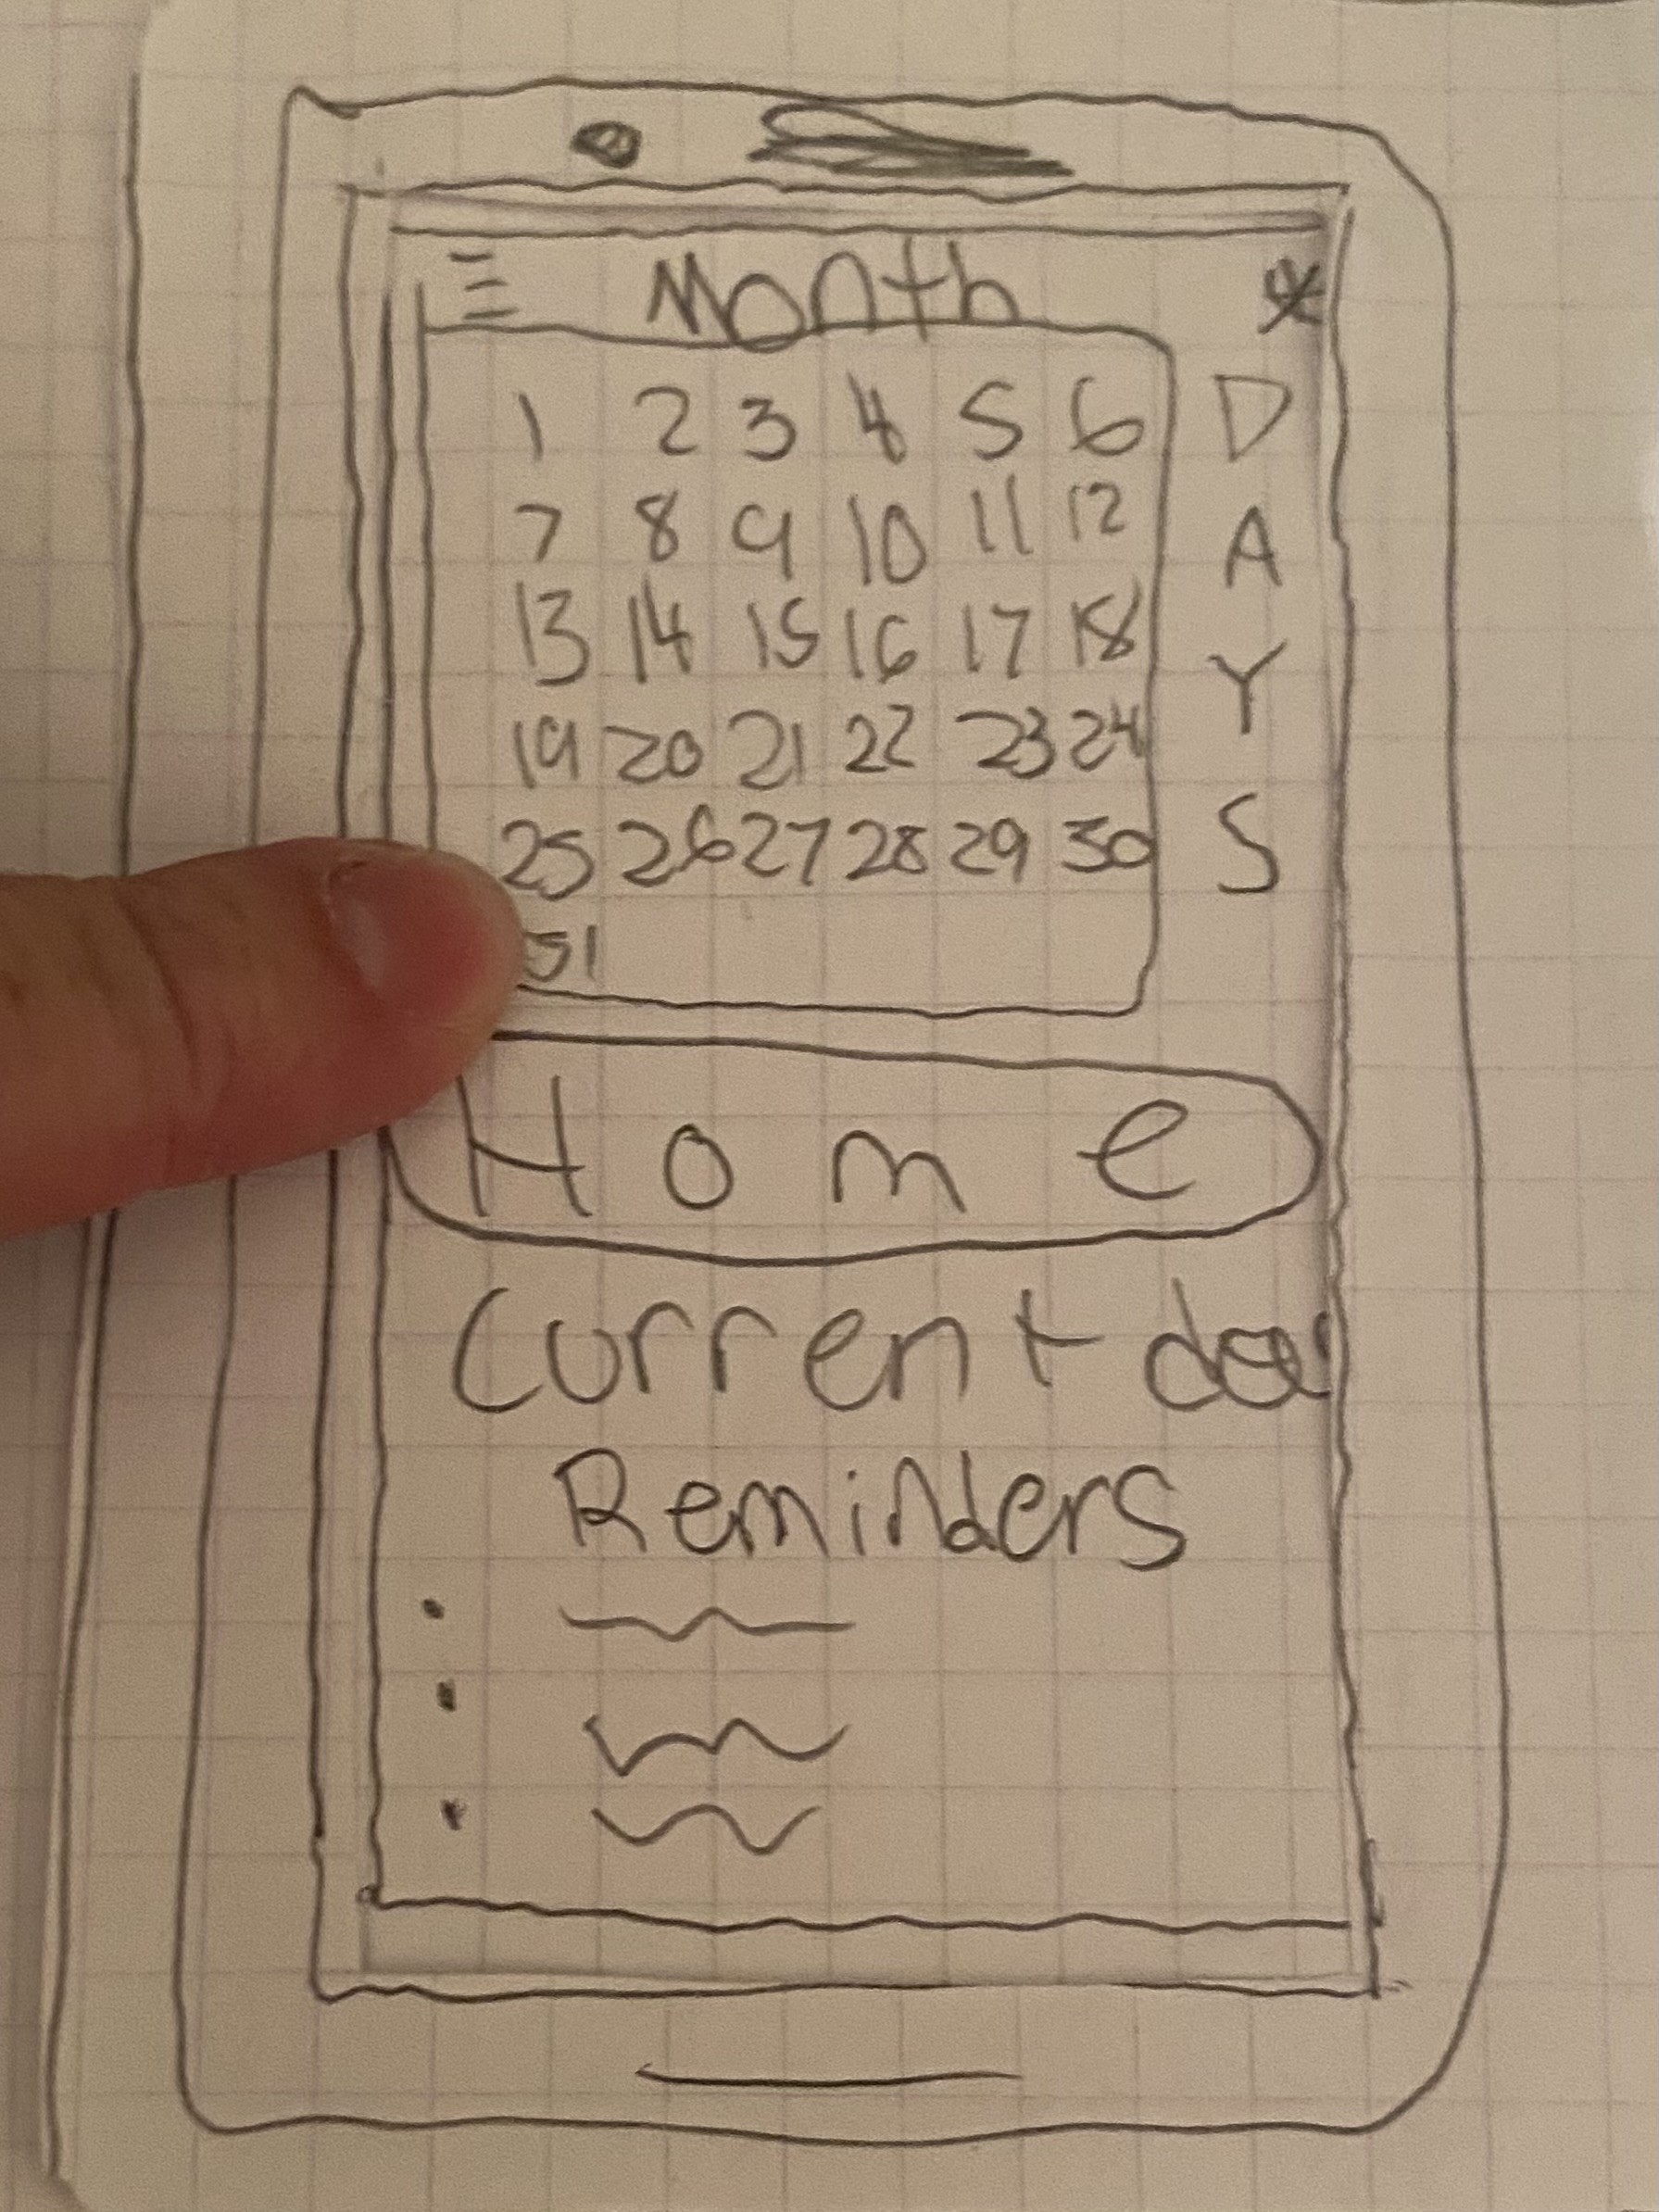 Month
1 2 3 4 5 6
7 8 9 10 11 12
13 14 15 16 17 18
19 20 21 22 23 24
25 26 27 28 29 30
31
D
A
Y
S
Home
Current
Reminders